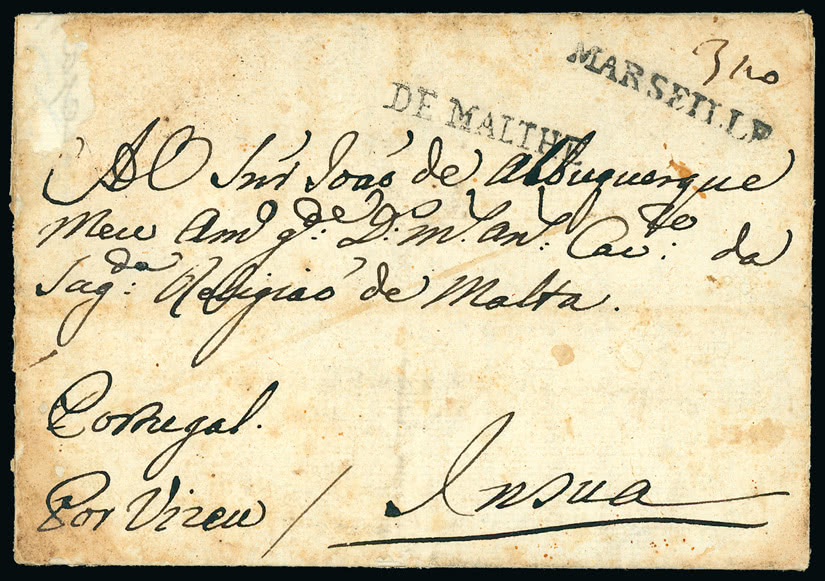 MARSEILLE
DE MALTHE
Ao Snr João de Albuquerque
Meu Amo gde: Do: mto: Ano: Cavro: da
Sagda: Religião de Malta.
Portugal.
Por Vizeu / Insua